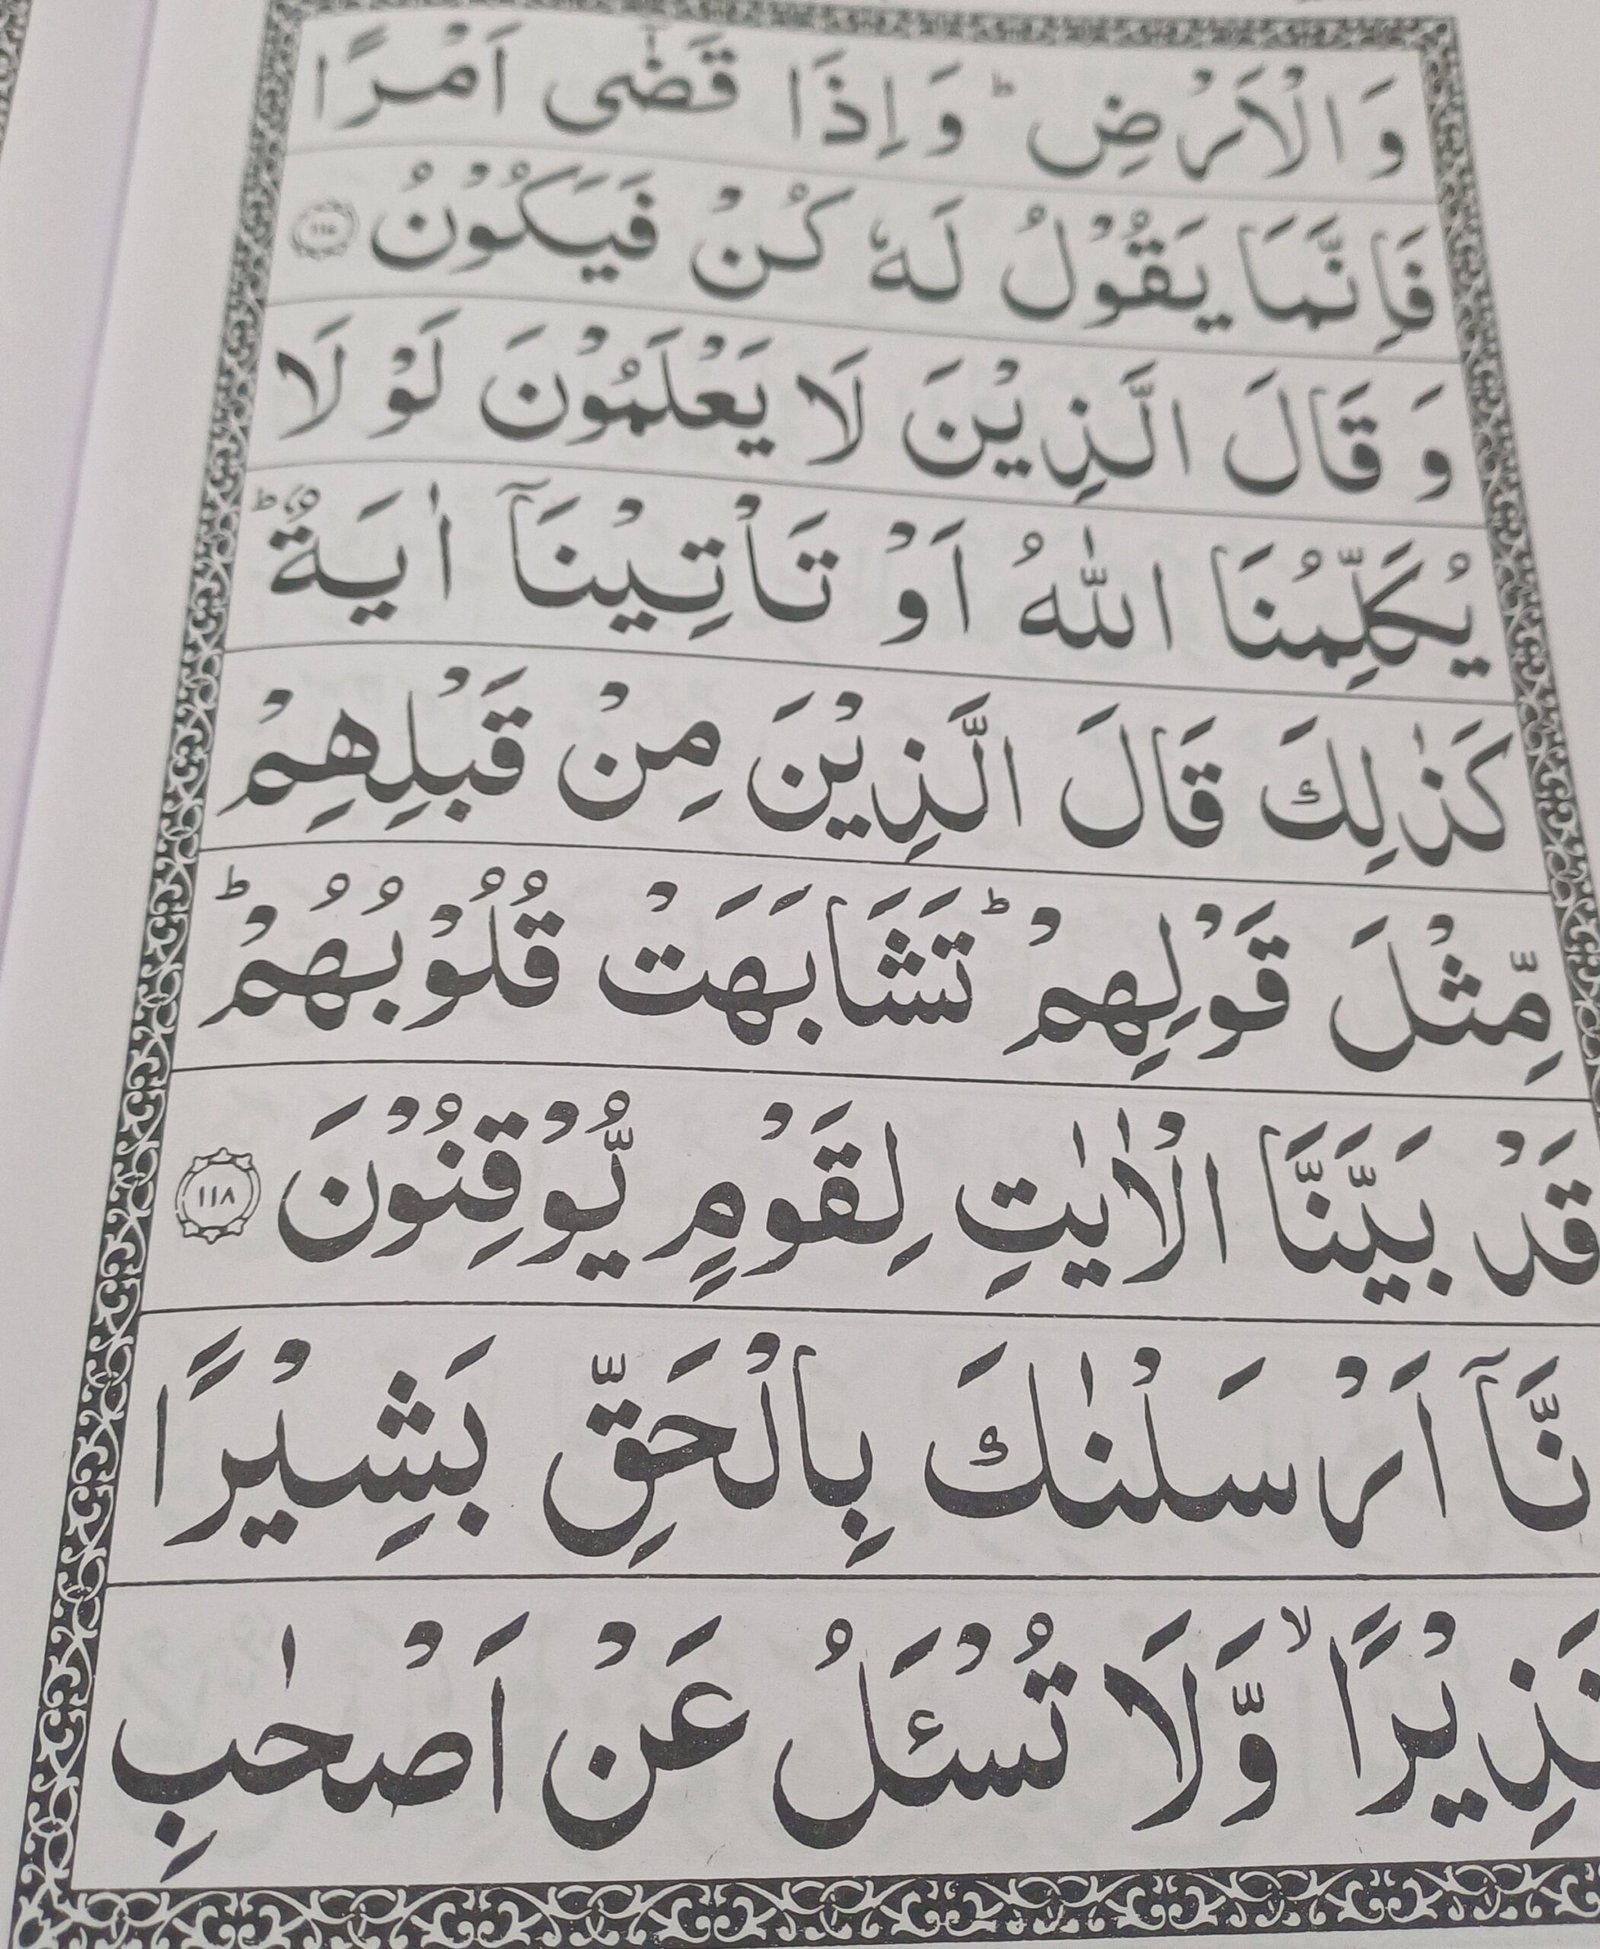 وَالْاَرْضِ ؕ وَاِذَا قَضٰۤى اَمْرًا
فَاِنَّمَا يَقُوْلُ لَهٗ كُنْ فَيَكُوْنُ
وَ قَالَ الَّذِيْنَ لَا يَعْلَمُوْنَ لَوْ لَا
يُكَلِّمُنَا اللّٰهُ اَوْ تَاْتِيْنَاۤ اٰيَةٌ ؕ
كَذٰلِكَ قَالَ الَّذِيْنَ مِنْ قَبْلِهِمْ
مِّثْلَ قَوْلِهِمْ ؕ تَشَابَهَتْ قُلُوْبُهُمْ ؕ
قَدْ بَيَّنَّا الْاٰيٰتِ لِقَوْمٍ يُّوْقِنُوْنَ ١١٨
نَّاۤ اَرْسَلْنٰكَ بِالْحَقِّ بَشِيْرًا
نَذِيْرًا ۙ وَّلَا تُسْـَٔلُ عَنْ اَصْحٰبِ